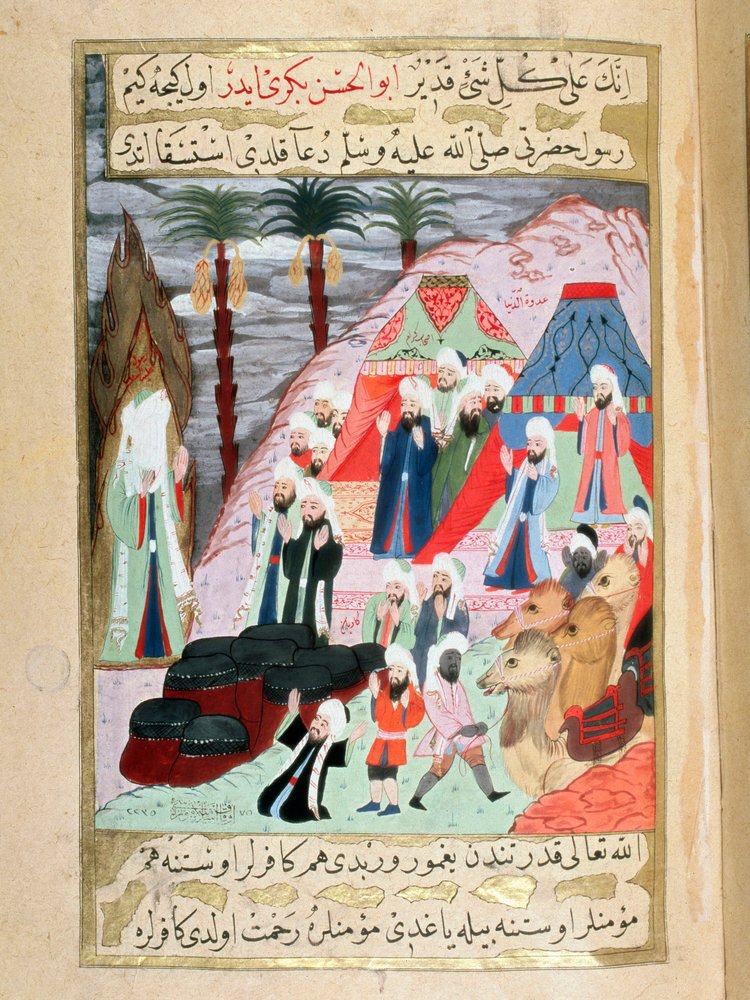 اِنَّكَ عَلَىٰ كُلِّ شَئٍ قَدِيرٌ ابو الحَسَن بكرى ايدر اول كيجه كيم
رسول حضرتى صلّى الله عليه وسلّم دُعا قلدى اسْتسْقا اتدى
عدوة الدنيا
الله تعالى قدرتندن يغمور وربدى هم كافرلر اوستنه هم
مؤمنلر اوستنه بيله ياغدى مؤمنلره رحمت اولدى كافرلره